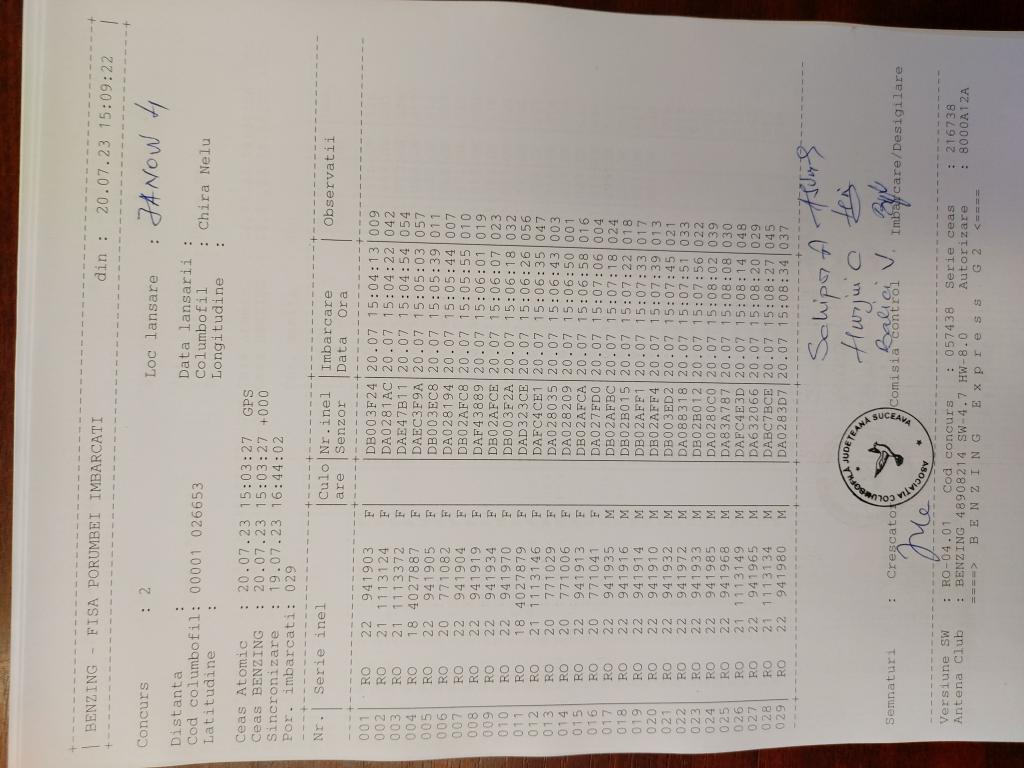 BENZING - FISA PORUMBEI IMBARCATI din : 20.07.23 15:09:22
Concurs : 2 Loc lansare : JANOW 4
Distanta : Data lansarii :
Cod columbofil: 00001 026653 Columbofil : Chira Nelu
Latitudine : Longitudine :
Ceas Atomic : 20.07.23 15:03:27 GPS
Ceas BENZING : 20.07.23 15:03:27 +000
Sincronizare : 19.07.23 16:44:02
Por. imbarcati: 029
Nr.| Serie inel |Culo|Nr.inel |Imbarcare | Observatii
|are |Senzor |Data Ora |
001 RO 22 941903 F DB003F24 20.07 15:04:13 009
002 RO 21 1113124 F DA0281AC 20.07 15:04:22 042
003 RO 21 1113372 F DAE47B11 20.07 15:04:54 054
004 RO 18 4027887 F DAEC3F9A 20.07 15:05:03 057
005 RO 22 941905 F DB003EC8 20.07 15:05:39 011
006 RO 20 771082 F DA028194 20.07 15:05:44 007
007 RO 22 941904 F DB02AFC8 20.07 15:05:55 010
008 RO 22 941919 F DAF43889 20.07 15:06:01 019
009 RO 22 941934 F DB02AFCE 20.07 15:06:07 023
010 RO 22 941970 F DB003F2A 20.07 15:06:18 032
011 RO 18 4027879 F DAD323CE 20.07 15:06:26 056
012 RO 21 1113146 F DAFC4CE1 20.07 15:06:35 047
013 RO 20 771029 F DA028035 20.07 15:06:43 003
014 RO 20 771006 F DA028209 20.07 15:06:50 001
015 RO 22 941913 F DB02AFCA 20.07 15:06:58 016
016 RO 20 771041 F DA027FD0 20.07 15:07:06 004
017 RO 22 941935 M DB02AFBC 20.07 15:07:18 024
018 RO 22 941916 M DB02B015 20.07 15:07:22 018
019 RO 22 941914 M DB02AFF1 20.07 15:07:33 017
020 RO 22 941910 M DB02AFF4 20.07 15:07:39 013
021 RO 22 941932 M DB003ED2 20.07 15:07:45 021
022 RO 22 941972 M DA083318 20.07 15:07:51 033
023 RO 22 941933 M DB02B012 20.07 15:07:56 022
024 RO 22 941985 M DA0280C0 20.07 15:08:02 039
025 RO 22 941968 M DA83A787 20.07 15:08:08 030
026 RO 21 1113149 M DAFC4E3D 20.07 15:08:14 048
027 RO 22 941965 M DA632066 20.07 15:08:20 029
028 RO 21 1113134 M DABC7BCE 20.07 15:08:27 045
029 RO 22 941980 M DA0283D7 20.07 15:08:34 037
Schipor A
C
V.
ASOCIATIA COLUMBOFILĂ JUDETEANĂ SUCEAVA
Semnaturi : Crescator Comisia control, Imbarcare/Desigilare
Versiune SW : RO-04.01 Cod concurs : 057438 Serie ceas : 216738
Antena Club : BENZING 48908214 SW-4.7 HW-8.0 Autorizare : 8000A12A
====> B E N Z I N G E x p r e s s G 2 <====